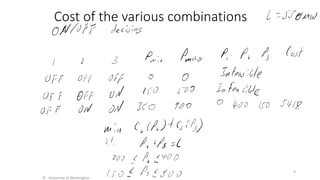 Cost of the various combinations
L=550MW
ON/OFF decisions
1 2 3 Pmin Pmax P1 P2 P3 Cost
OFF OFF OFF 0 0 Infeasible
OFF OFF ON 150 500 Infeasible
OFF ON ON 350 900 0 400 150 5418
min C2(P2)+C3(P3)
s.t. P2+P3=L
200 ≤ P2 ≤ 400
150 ≤ P3 ≤ 500
© University of Washington